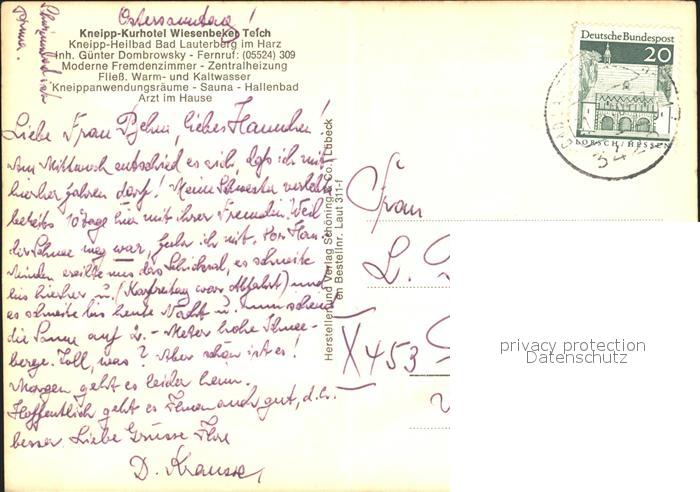 Ostersamstag!
Kneipp-Kurhotel Wiesenbeker Teich
Kneipp-Heilbad Bad Lauterberg im Harz
Inh. Günter Dombrowsky - Fernruf: (05524) 309
Moderne Fremdenzimmer - Zentralheizung
Fließ. Warm- und Kaltwasser
Kneippanwendungsräume - Sauna - Hallenbad
Arzt im Hause
Liebe Frau liebes Hannchen!
Am Mittwoch entschied es sich, daß ich mit
hierher fahren darf! Meine Schwester verlebte
bereits 10 Tage hier mit ihrer Freundin. Weil
der Schnee weg war, fuhr ich mit. Vor Han.
Münden ereilte uns das Schicksal, es schneite
bis hierher u. (Karfreitag war Abfahrt) und
es schneite bis heute Nacht u. nun scheint
die Sonne auf 2.- Meter hohe Schnee-
berge. Toll, was? Aber schön ist es!
Morgen geht es leider heim.
Hoffentlich geht es Ihnen auch gut, d.h.
besser. Liebe Grüsse Ihre
D. Krause,
Schwimmbad ist
prima.
Hersteller und Verlag Schöning & Co., Lübeck
en Bestellnr. Laut 311-f
Deutsche Bundespost
20
LORSCH/HESSEN
342
Frau
L.
X453
privacy protection
Datenschutz